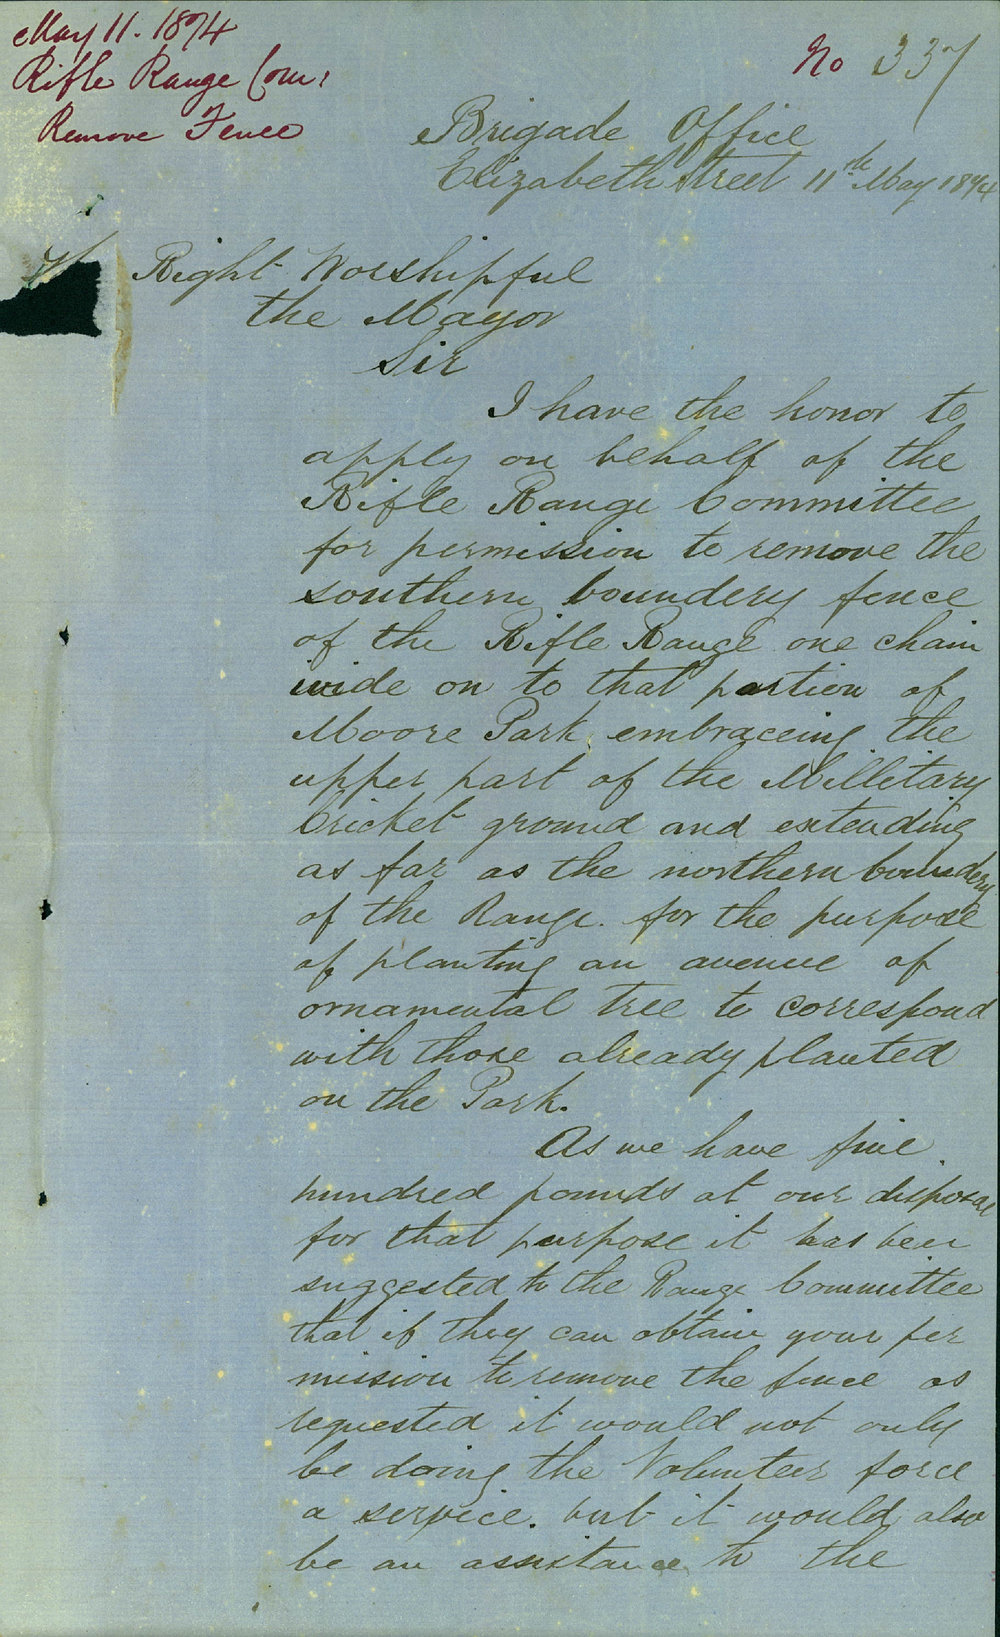 May 11. 1874
Rifle Range Com:
Remove Fence
No 337
Brigade Office
Elizabeth Street 11th May 1874
Right Worshipful
the Mayor
Sir
I have the honor to
apply on behalf of the
Rifle Range Committee
for permission to remove the
southern boundery fence
of the Rifle Range one chain
wide on to that portion of
Moore Park embraceing the
upper part of the Milletary
Cricket ground and extending
as far as the northern boundery
of the Range. for the purpose
of planting an avenue of
ornamental tree to correspond
with those already planted
on the Park.
As we have five
hundred pounds at our disposal
for that purpose it has been
suggested to the Range Committee
that if they can obtain your per
mission to remove the fence as
requested it would not only
be doing the Volunteer force
a service. but it would also
be an assistance to the